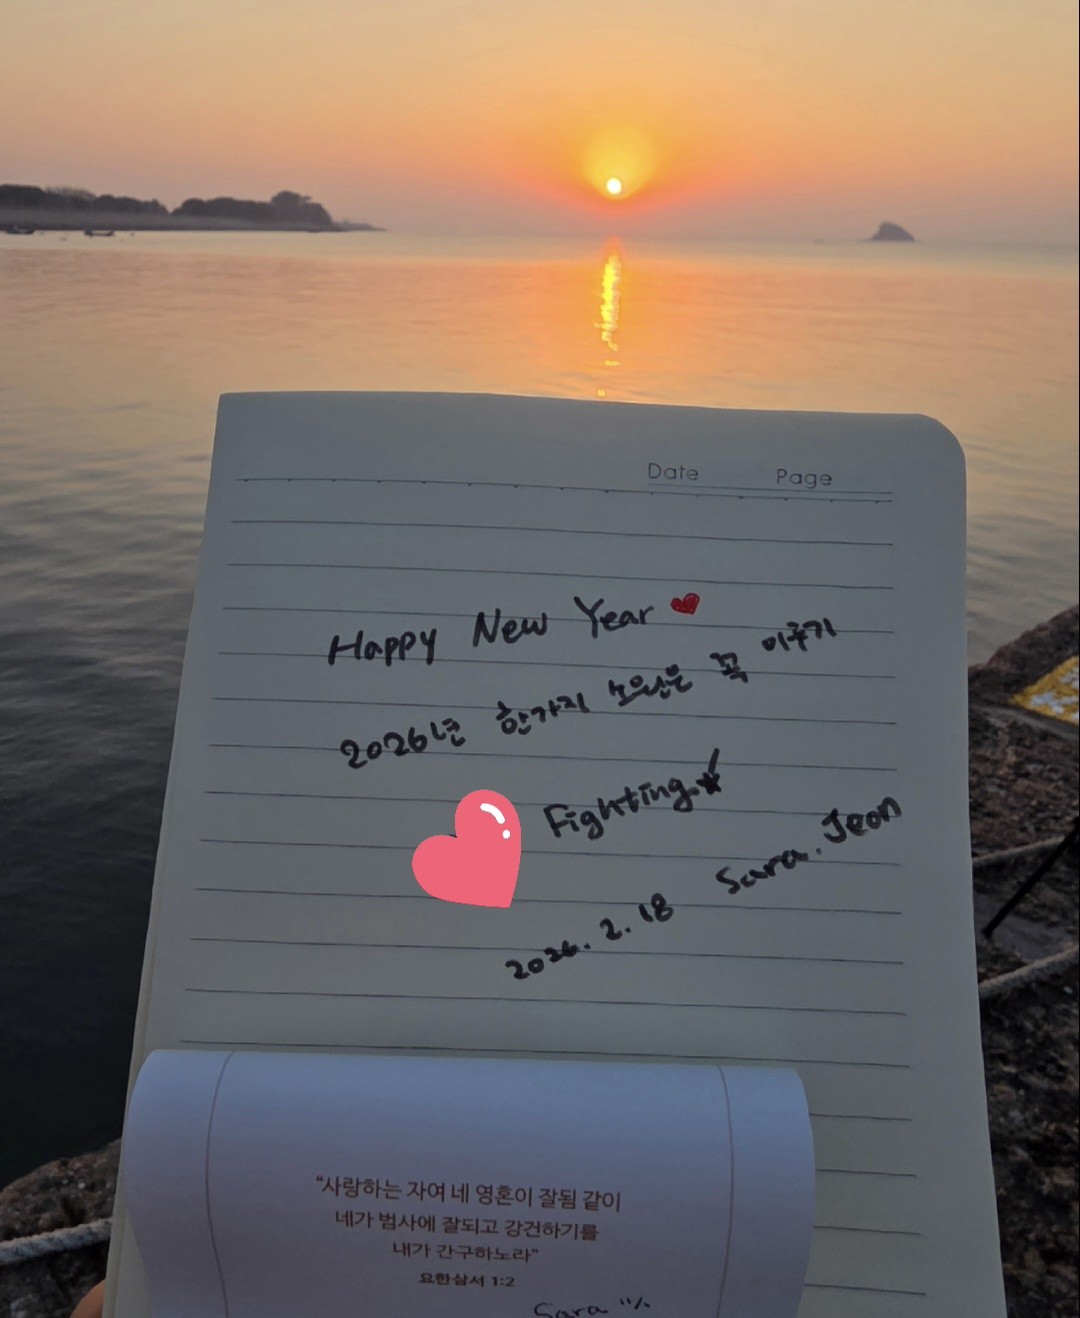 Date Page
Happy New Year
2026년 한가지 소원은 꼭 이루기
Fighting.
2026. 2. 18 Sara. Jeon
“사랑하는 자여 네 영혼이 잘됨 같이
네가 범사에 잘되고 강건하기를
내가 간구하노라”
요한삼서 1:2
Sara